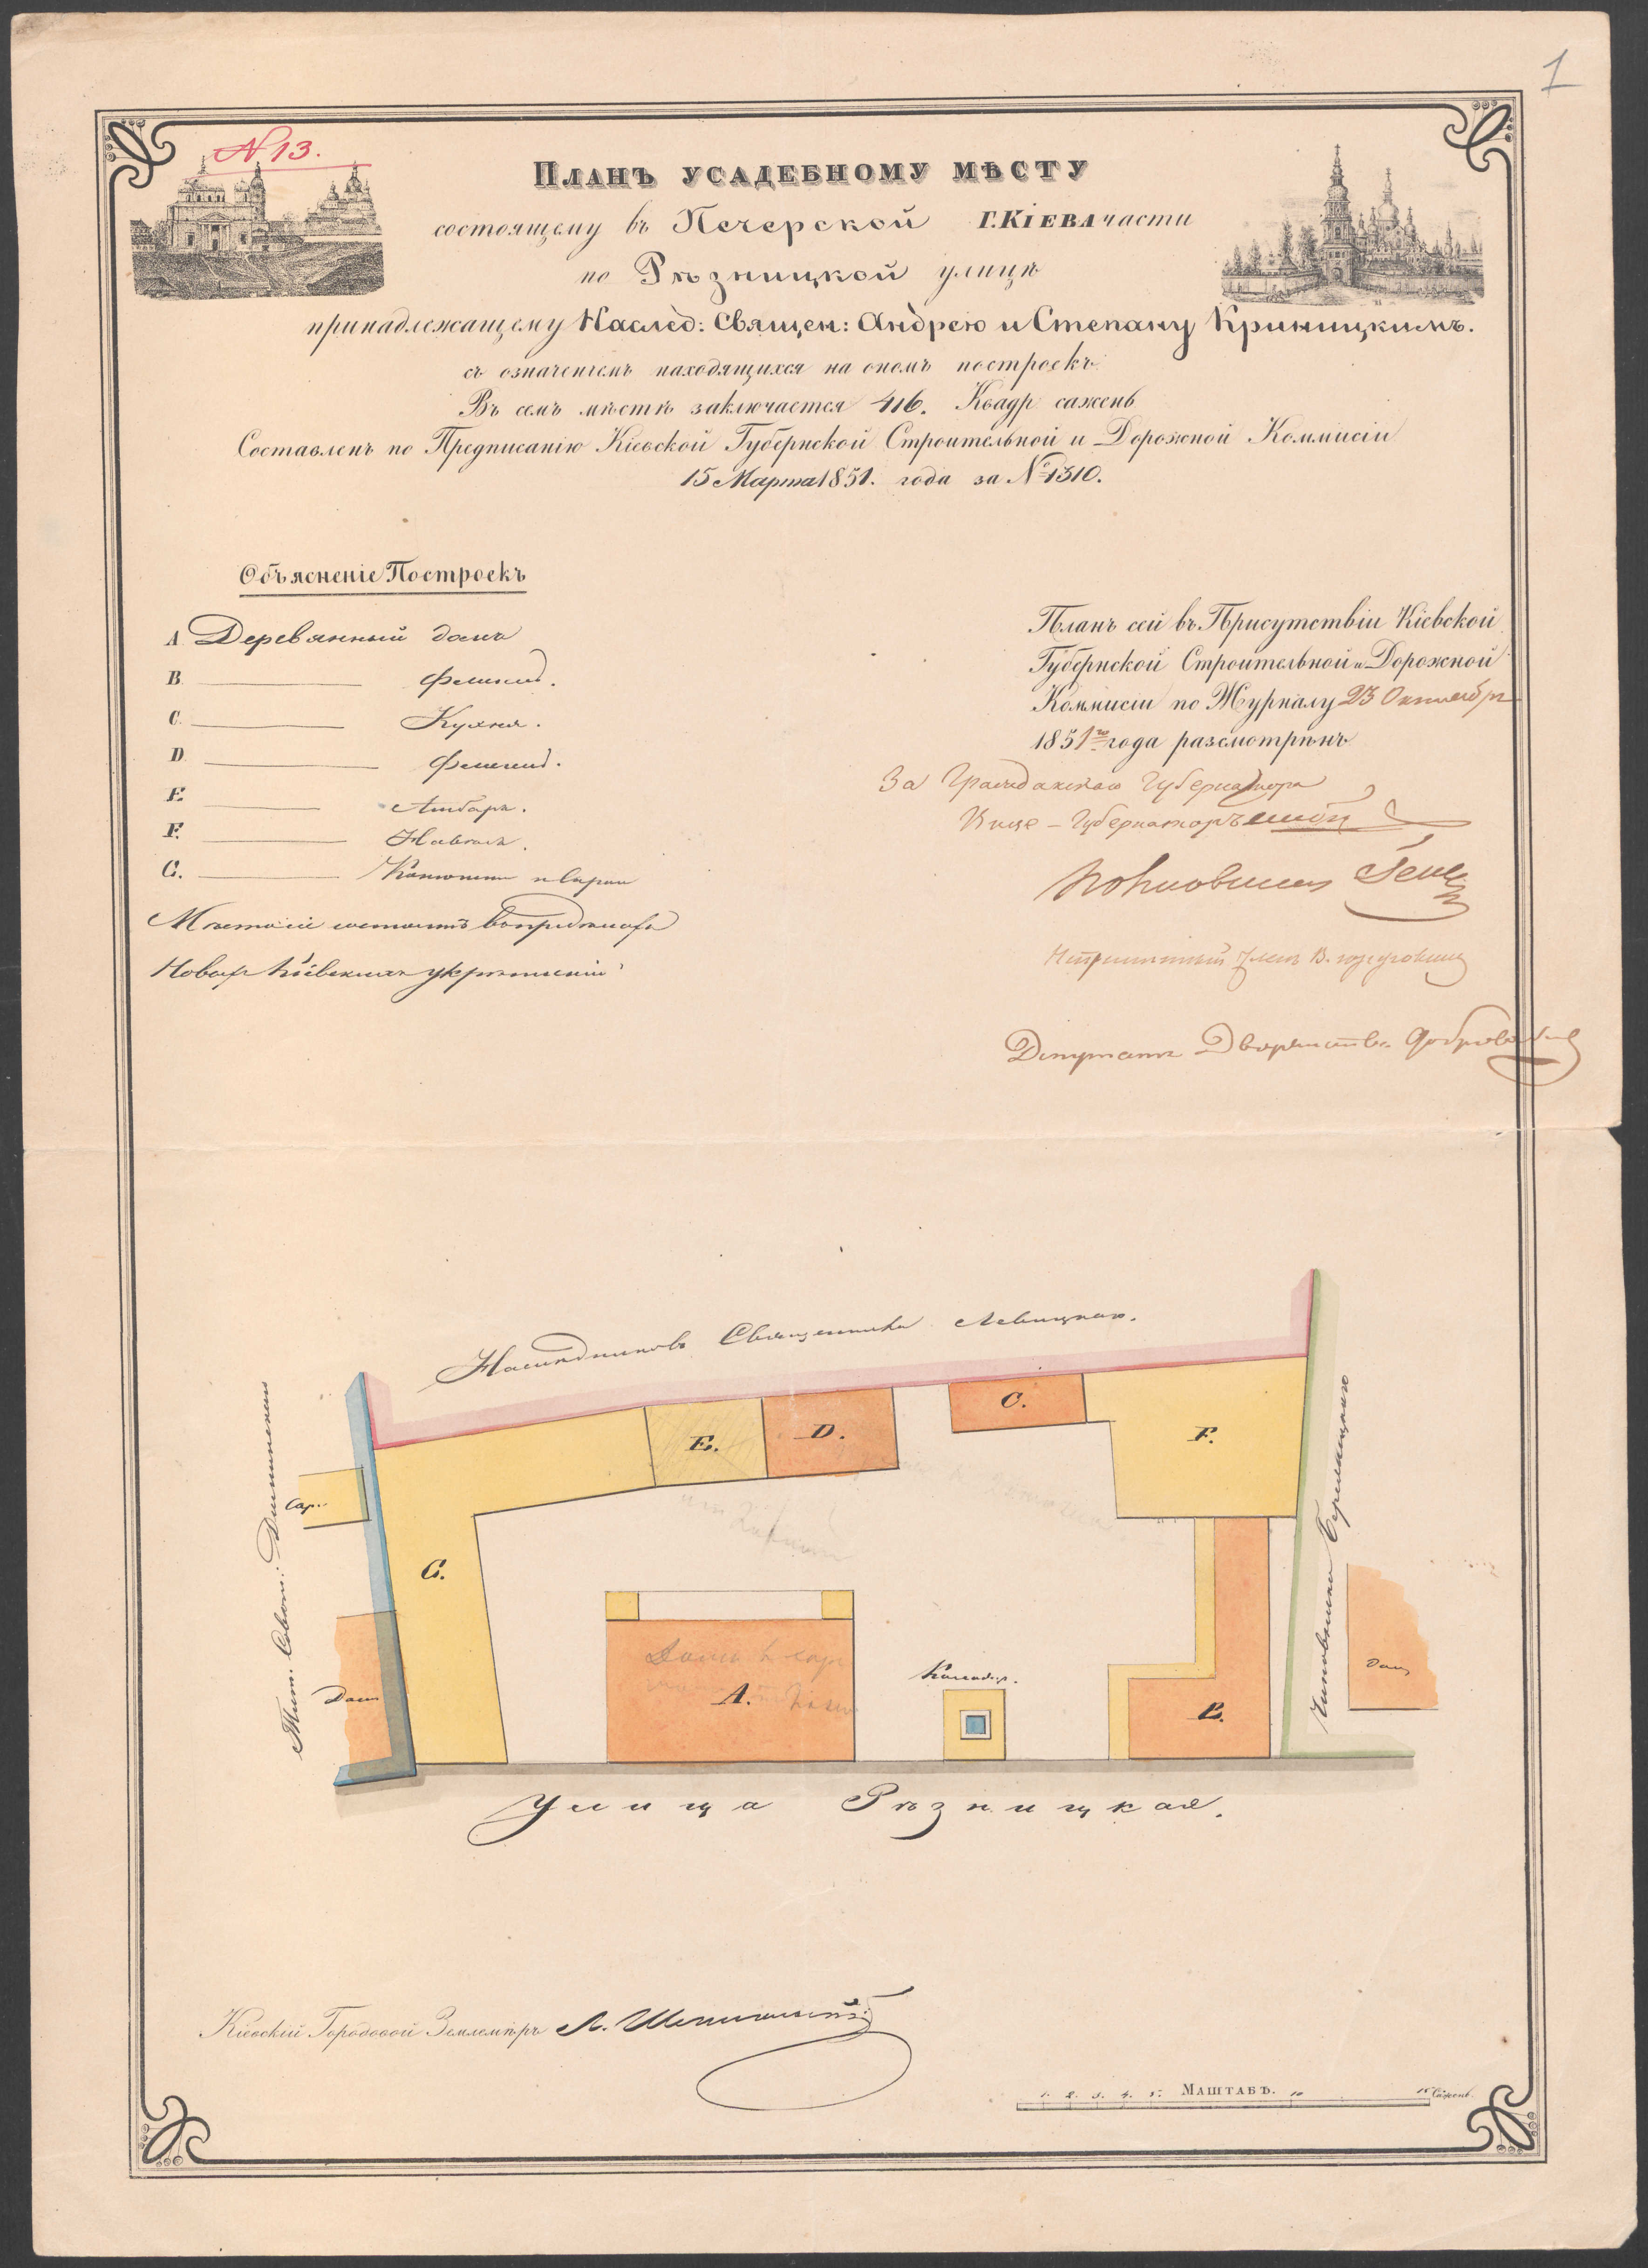 1
N 13.
Планъ усадебному мѣсту
состоящему въ Печерской г. Кіева части
по Рѣзницкой улицѣ
принадлежащему Наслед: Священ: Андрею и Степану Криницкимъ.
съ означеніемъ находящихся на ономъ построекъ
Въ семъ мѣстѣ заключается 416. Квадр сажень
Составленъ по Предписанію Кіевской Губернской Строительной и Дорожной Коммисіи
15 Марта 1851. года за № 1310.
Объясненіе Построекъ
A Деревянный домъ
B. Флигель.
C. Кухня.
D. Флигель.
E. Амбаръ.
F. Навесъ.
G. Конюшни и Сараи
Место сіе состоитъ
Новыхъ Кіевскихъ укрепленій
Планъ сей въ Присутствіи Кіевской
Губернской Строительной и Дорожной
Коммисіи по Журналу 23 Октября
1851го года разсмотрѣнъ
За Гражданскаго Губернатора
Вице-Губернаторъ
Депутатъ Дворянства
Наследниковъ Священника Левицкаго.
Тит. Совет.
Чиновника
Сар.
Домъ
G.
E.
D.
C.
F.
A.
B.
Колодез.
Домъ
Улица Рѣзницкая.
Кіевскій Городовой Землемѣръ
1. 2. 3. 4. 5. Маштабъ. 10 15 Сажень.